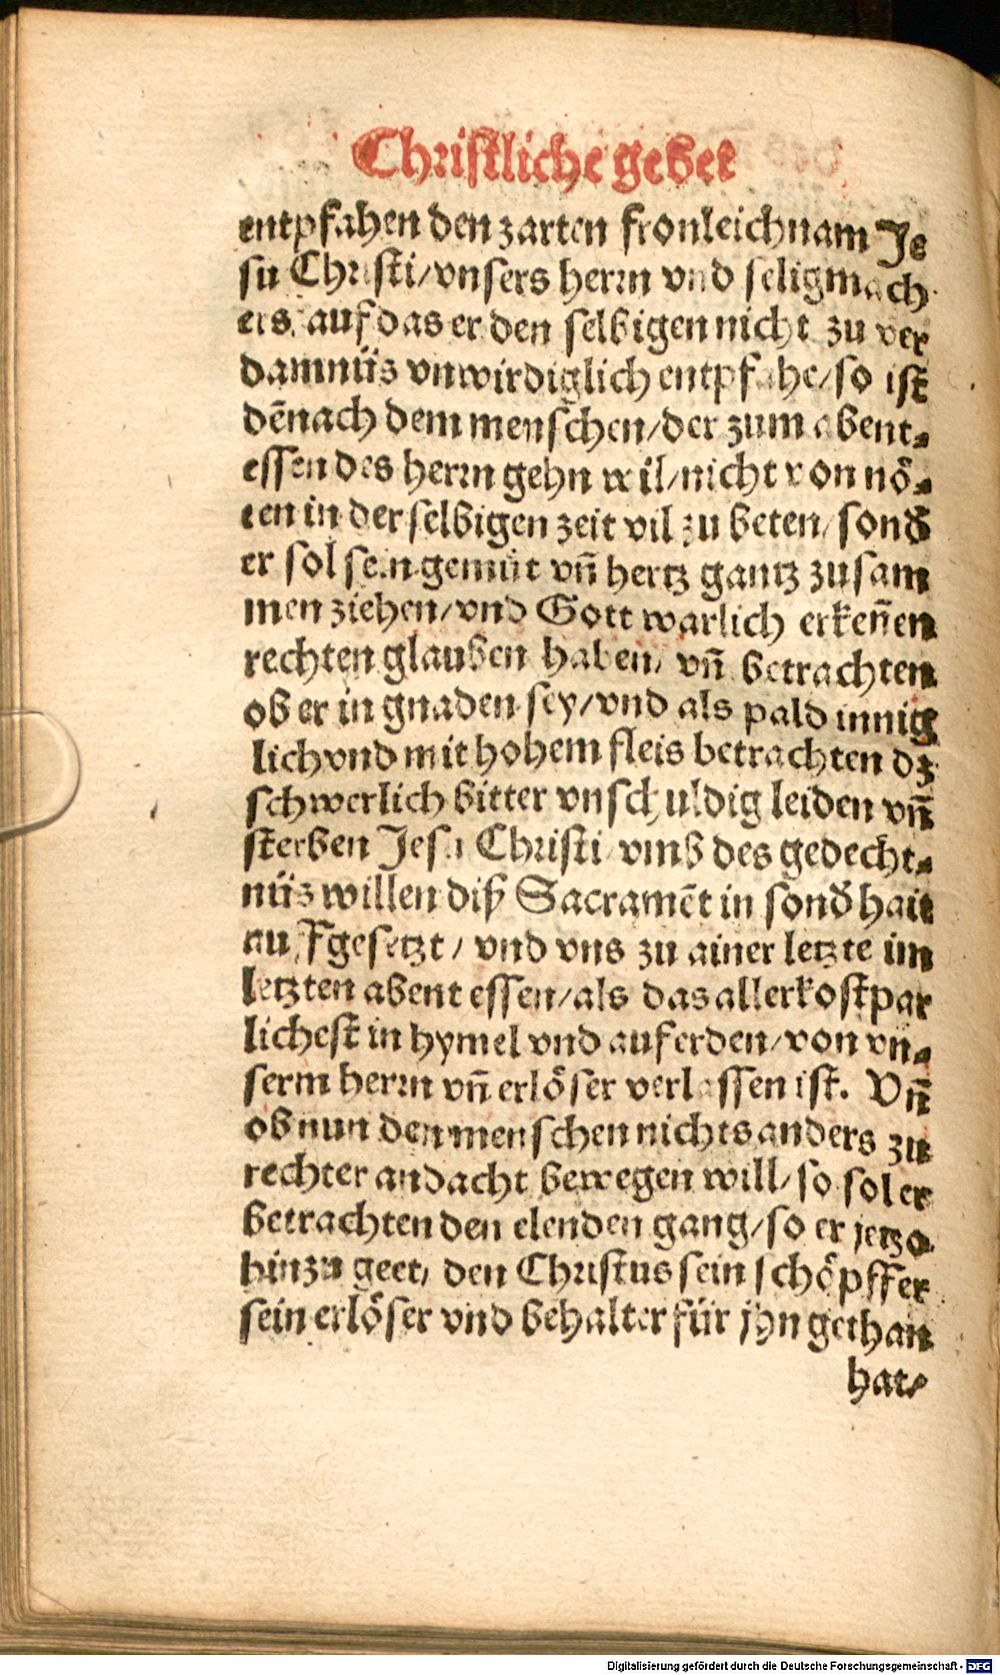 Christliche gebet
entpfahen den zarten fronleichnam Je
su Christi/vnsers herrn vnd seligmach
ers/auf das er den selbigen nicht zu ver
damnüs vnwirdiglich entpfahe/so ist
dēnach dem menschen/der zum abent-
essen des herrn gehn wil/nicht von nö-
ten in der selbigen zeit vil zu beten/sonđ
er sol sein gemüt vn̄ hertz gantz zusam
men ziehen/vnd Gott warlich erken̄en
rechten glauben haben/ vn̄ betrachten
ob er in gnaden sey/vnd als pald innig
lich vnd mit hohem fleis betrachten dz
schwerlich bitter vnschuldig leiden vn̄
sterben Jesu Christi/vmb des gedecht-
nüs willen diß Sacramēt in sonđhait
auffgesetzt/ vnd vns zu ainer letzte im
letzten abent essen/als das allerkostpar
lichest in hymel vnd auf erden/von vn-
serm herrn vn̄ erlöser verlassen ist. Vn̄
ob nun den menschen nichts anders zu
rechter andacht bewegen will/so sol er
betrachten den elenden gang/so er jetzo
hinzu geet/ den Christus sein schöpffer
sein erlöser vnd behalter für jhn gethan
hat/
Digitalisierung gefördert durch die Deutsche Forschungsgemeinschaft - DFG